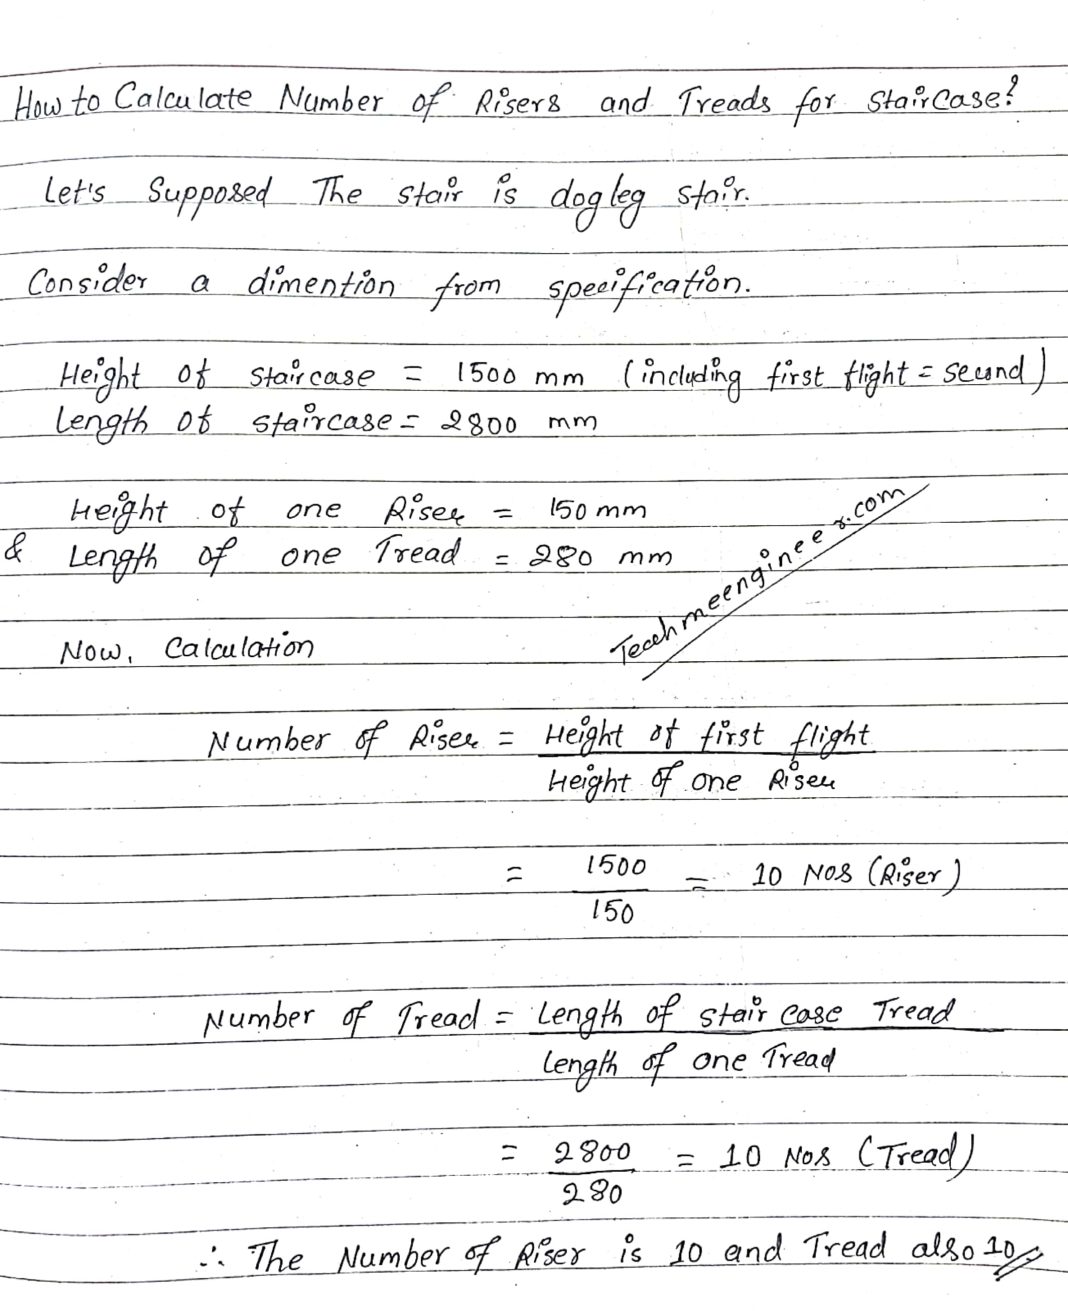 How to Calculate Number of Risers and Treads for StairCase?
Let's Supposed The Stair is dog leg stair.
Consider a dimention from specification.
Height of staircase = 1500 mm (including first flight = second)
Length of staircase = 2800 mm
Height of one Riser = 150 mm
& Length of one Tread = 280 mm
Teachmeengineer.com
Now, Calculation
Number of Riser = Height of first flight
Height of one Riser
= 1500 = 10 Nos (Riser)
150
Number of Tread = Length of stair case Tread
Length of one Tread
= 2800 = 10 Nos (Tread)
280
∴ The Number of Riser is 10 and Tread also 10